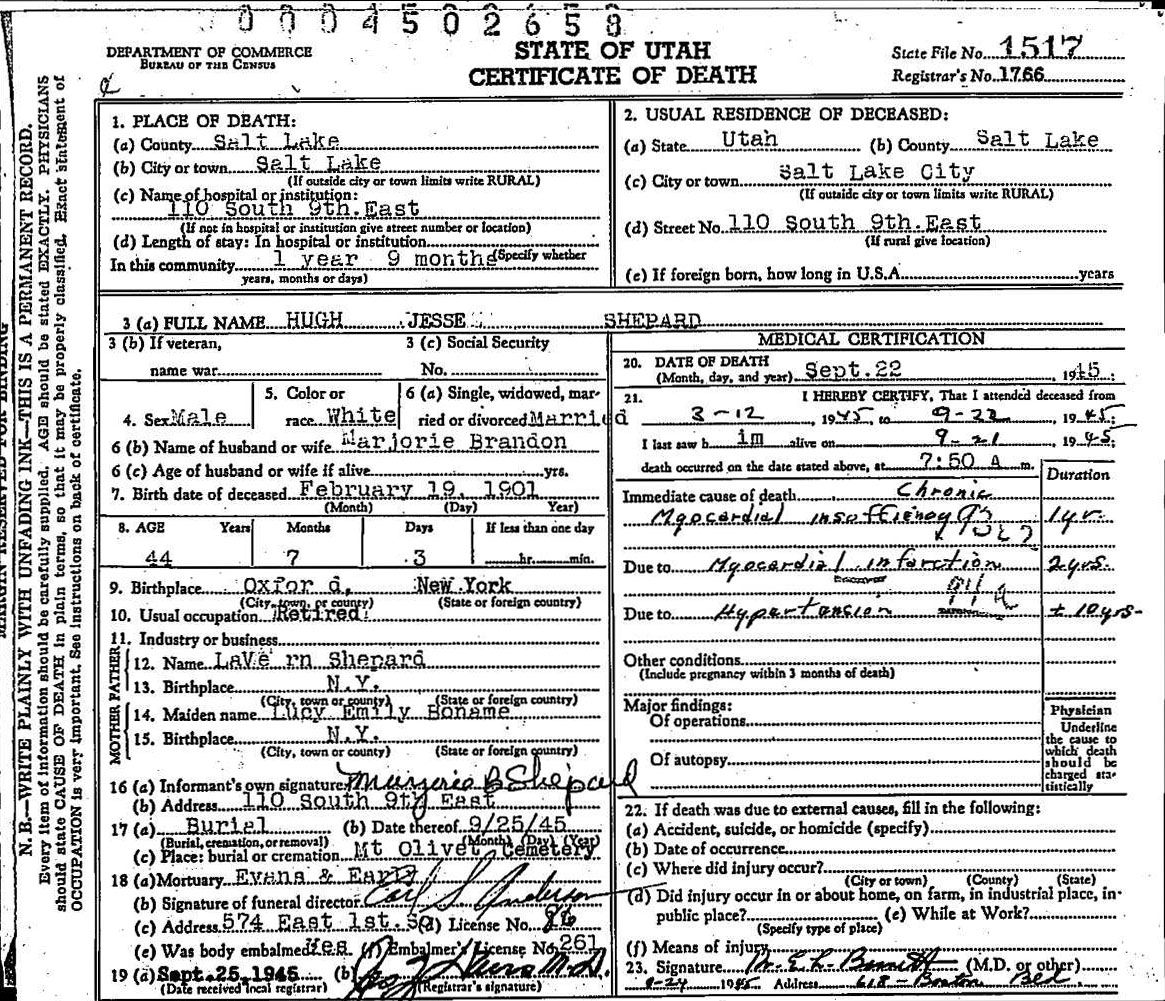 0004502658
DEPARTMENT OF COMMERCE
BUREAU OF THE CENSUS
STATE OF UTAH
CERTIFICATE OF DEATH
State File No. 1517
Registrar's No. 1766
MARGIN RESERVED FOR BINDING
N. B.—WRITE PLAINLY WITH UNFADING INK—THIS IS A PERMANENT RECORD.
Every item of information should be carefully supplied. AGE should be stated EXACTLY. PHYSICIANS
should state CAUSE OF DEATH in plain terms, so that it may be properly classified. Exact statement of
OCCUPATION is very important. See instructions on back of certificate.
1. PLACE OF DEATH:
(a) County Salt Lake
(b) City or town Salt Lake
(If outside city or town limits write RURAL)
(c) Name of hospital or institution:
110 South 9th.East
(If not in hospital or institution give street number or location)
(d) Length of stay: In hospital or institution
(Specify whether
In this community 1 year 9 months
years, months or days)
2. USUAL RESIDENCE OF DECEASED:
(a) State Utah (b) County Salt Lake
(c) City or town Salt Lake City
(If outside city or town limits write RURAL)
(d) Street No. 110 South 9th.East
(If rural give location)
(e) If foreign born, how long in U.S.A. years
3 (a) FULL NAME HUGH JESSE SHEPARD
3 (b) If veteran,
name war
3 (c) Social Security
No.
4. Sex Male
5. Color or
race White
6 (a) Single, widowed, mar-
ried or divorced Married
6 (b) Name of husband or wife Marjorie Brandon
6 (c) Age of husband or wife if alive yrs.
7. Birth date of deceased February 19, 1901
(Month) (Day) (Year)
8. AGE Years Months Days If less than one day
44 7 3 hr. min.
9. Birthplace Oxfor d, New York
(City, town, or county) (State or foreign country)
10. Usual occupation Retired
11. Industry or business
FATHER
12. Name LaVe rn Shepard
13. Birthplace N.Y.
(City, town or county) (State or foreign country)
MOTHER
14. Maiden name Lucy Emily Boname
15. Birthplace N.Y.
(City, town or county) (State or foreign country)
16 (a) Informant's own signature Marjorie B Shepard
(b) Address 110 South 9ty East
17 (a) Burial (b) Date thereof 9/25/45
(Burial, cremation, or removal) (Month) (Day) (Year)
(c) Place: burial or cremation Mt Olivet Cemetery
18 (a) Mortuary Evans & Early
(b) Signature of funeral director Carl S Anderson
(c) Address 574 East 1st.So (d) License No. 86
(e) Was body embalmed Yes (f) Embalmer's License No. 261
19 (a) Sept. 25, 1945 (b) M.D.
(Date received local registrar) (Registrar's signature)
MEDICAL CERTIFICATION
20. DATE OF DEATH
(Month, day, and year) Sept.22 1945;
21. I HEREBY CERTIFY, That I attended deceased from
3-12, 1945, to 9-22, 1945;
I last saw h im alive on 9-21, 1945;
death occurred on the date stated above, at 7:50 A m.
Duration
Immediate cause of death Chronic
Myocardial insufficiency 1 yr.
Due to Myocardial infarction 2 yrs.
Due to Hypertension ± 10 yrs-
Other conditions
(Include pregnancy within 3 months of death)
Major findings:
Of operations
Of autopsy
Physician
Underline
the cause to
which death
should be
charged sta-
tistically
22. If death was due to external causes, fill in the following:
(a) Accident, suicide, or homicide (specify)
(b) Date of occurrence
(c) Where did injury occur?
(City or town) (County) (State)
(d) Did injury occur in or about home, on farm, in industrial place, in
public place? (e) While at Work?
(Specify type of place)
(f) Means of injury
23. Signature (M.D. or other)
9-24 1945 Address 618 - Boston Bld